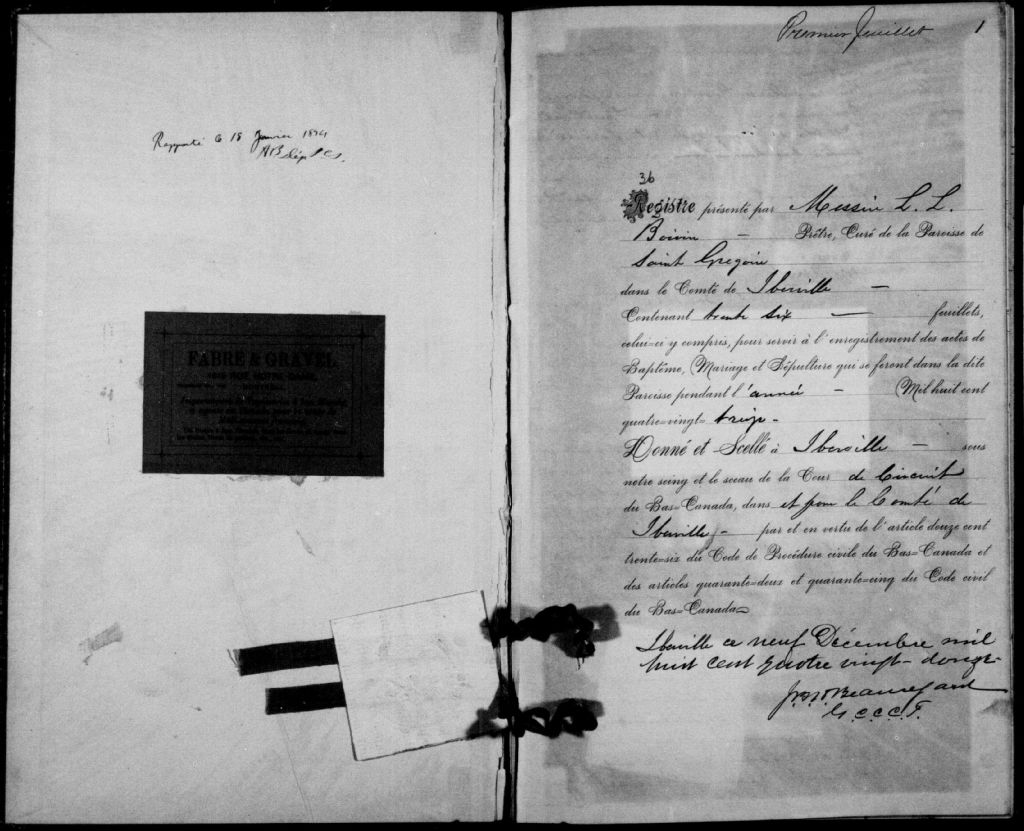 Rapporté le 18 Janvier 1894
FABRE & GRAVEL
RUE NOTRE-DAME
Premier feuillet 1
36
Registre présenté par Messire L. L.
Boivin – Prêtre, Curé de la Paroisse de
Saint Gregoire
dans le Comté de Iberville –
Contenant trente six – feuillets,
celui-ci y compris, pour servir à l'enregistrement des actes de
Baptême, Mariage et Sépulture qui se feront dans la dite
Paroisse pendant l'année – Mil huit cent
quatre-vingt- treize -
Donné et Scellé à Iberville – sous
notre seing et le sceau de la Cour de Circuit
du Bas-Canada, dans et pour le Comté de
Iberville - par et en vertu de l'article douze cent
trente-six du Code de Procédure civile du Bas-Canada et
des articles quarante-deux et quarante-cinq du Code civil
du Bas-Canada
Iberville ce neuf Décembre mil
huit cent quatre vingt- douze-
Beauregard
G.C.C.C.I.